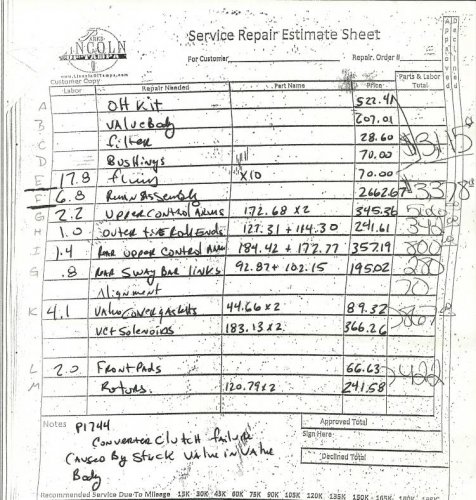 PARKS
LINCOLN
OF TAMPA
www.LincolnOfTampa.com
Service Repair Estimate Sheet
For Customer
Repair. Order #
Approved
Declined
Customer Copy
Labor Repair Needed Part Name Price Parts & Labor Total
A OH Kit 522.41
B Valve Body 607.01
C Filter 28.60 $3115
D Bushings 70.00
E 17.8 Fluid X10 70.00
F 6.8 Assembly 2662.67 $3378
G 2.2 Upper Control Arms 172.68 x2 345.36
H 1.0 Outer Tie Rod Ends 127.31 + 114.30 241.61
I 1.4 Rear Upper Control Arm 184.42 + 172.77 357.19
.8 Rear Sway Bar Links 92.87 + 102.15 195.02
Alignment
K 4.1 Valve Cover Gaskets 44.66 x2 89.32
VCT Solenoids 183.13 x2 366.26
L 2.0 Front Pads 66.63
M Rotors 120.79 x2 241.58
Notes P1744
Converter Clutch Failure
Caused By Stuck Valve in Valve
Body
Approved Total
Sign Here
Declined Total
Recommended Service Due To Mileage 15K 30K 45K 60K 75K 90K 105K 120K 135K 150K 165K 180K